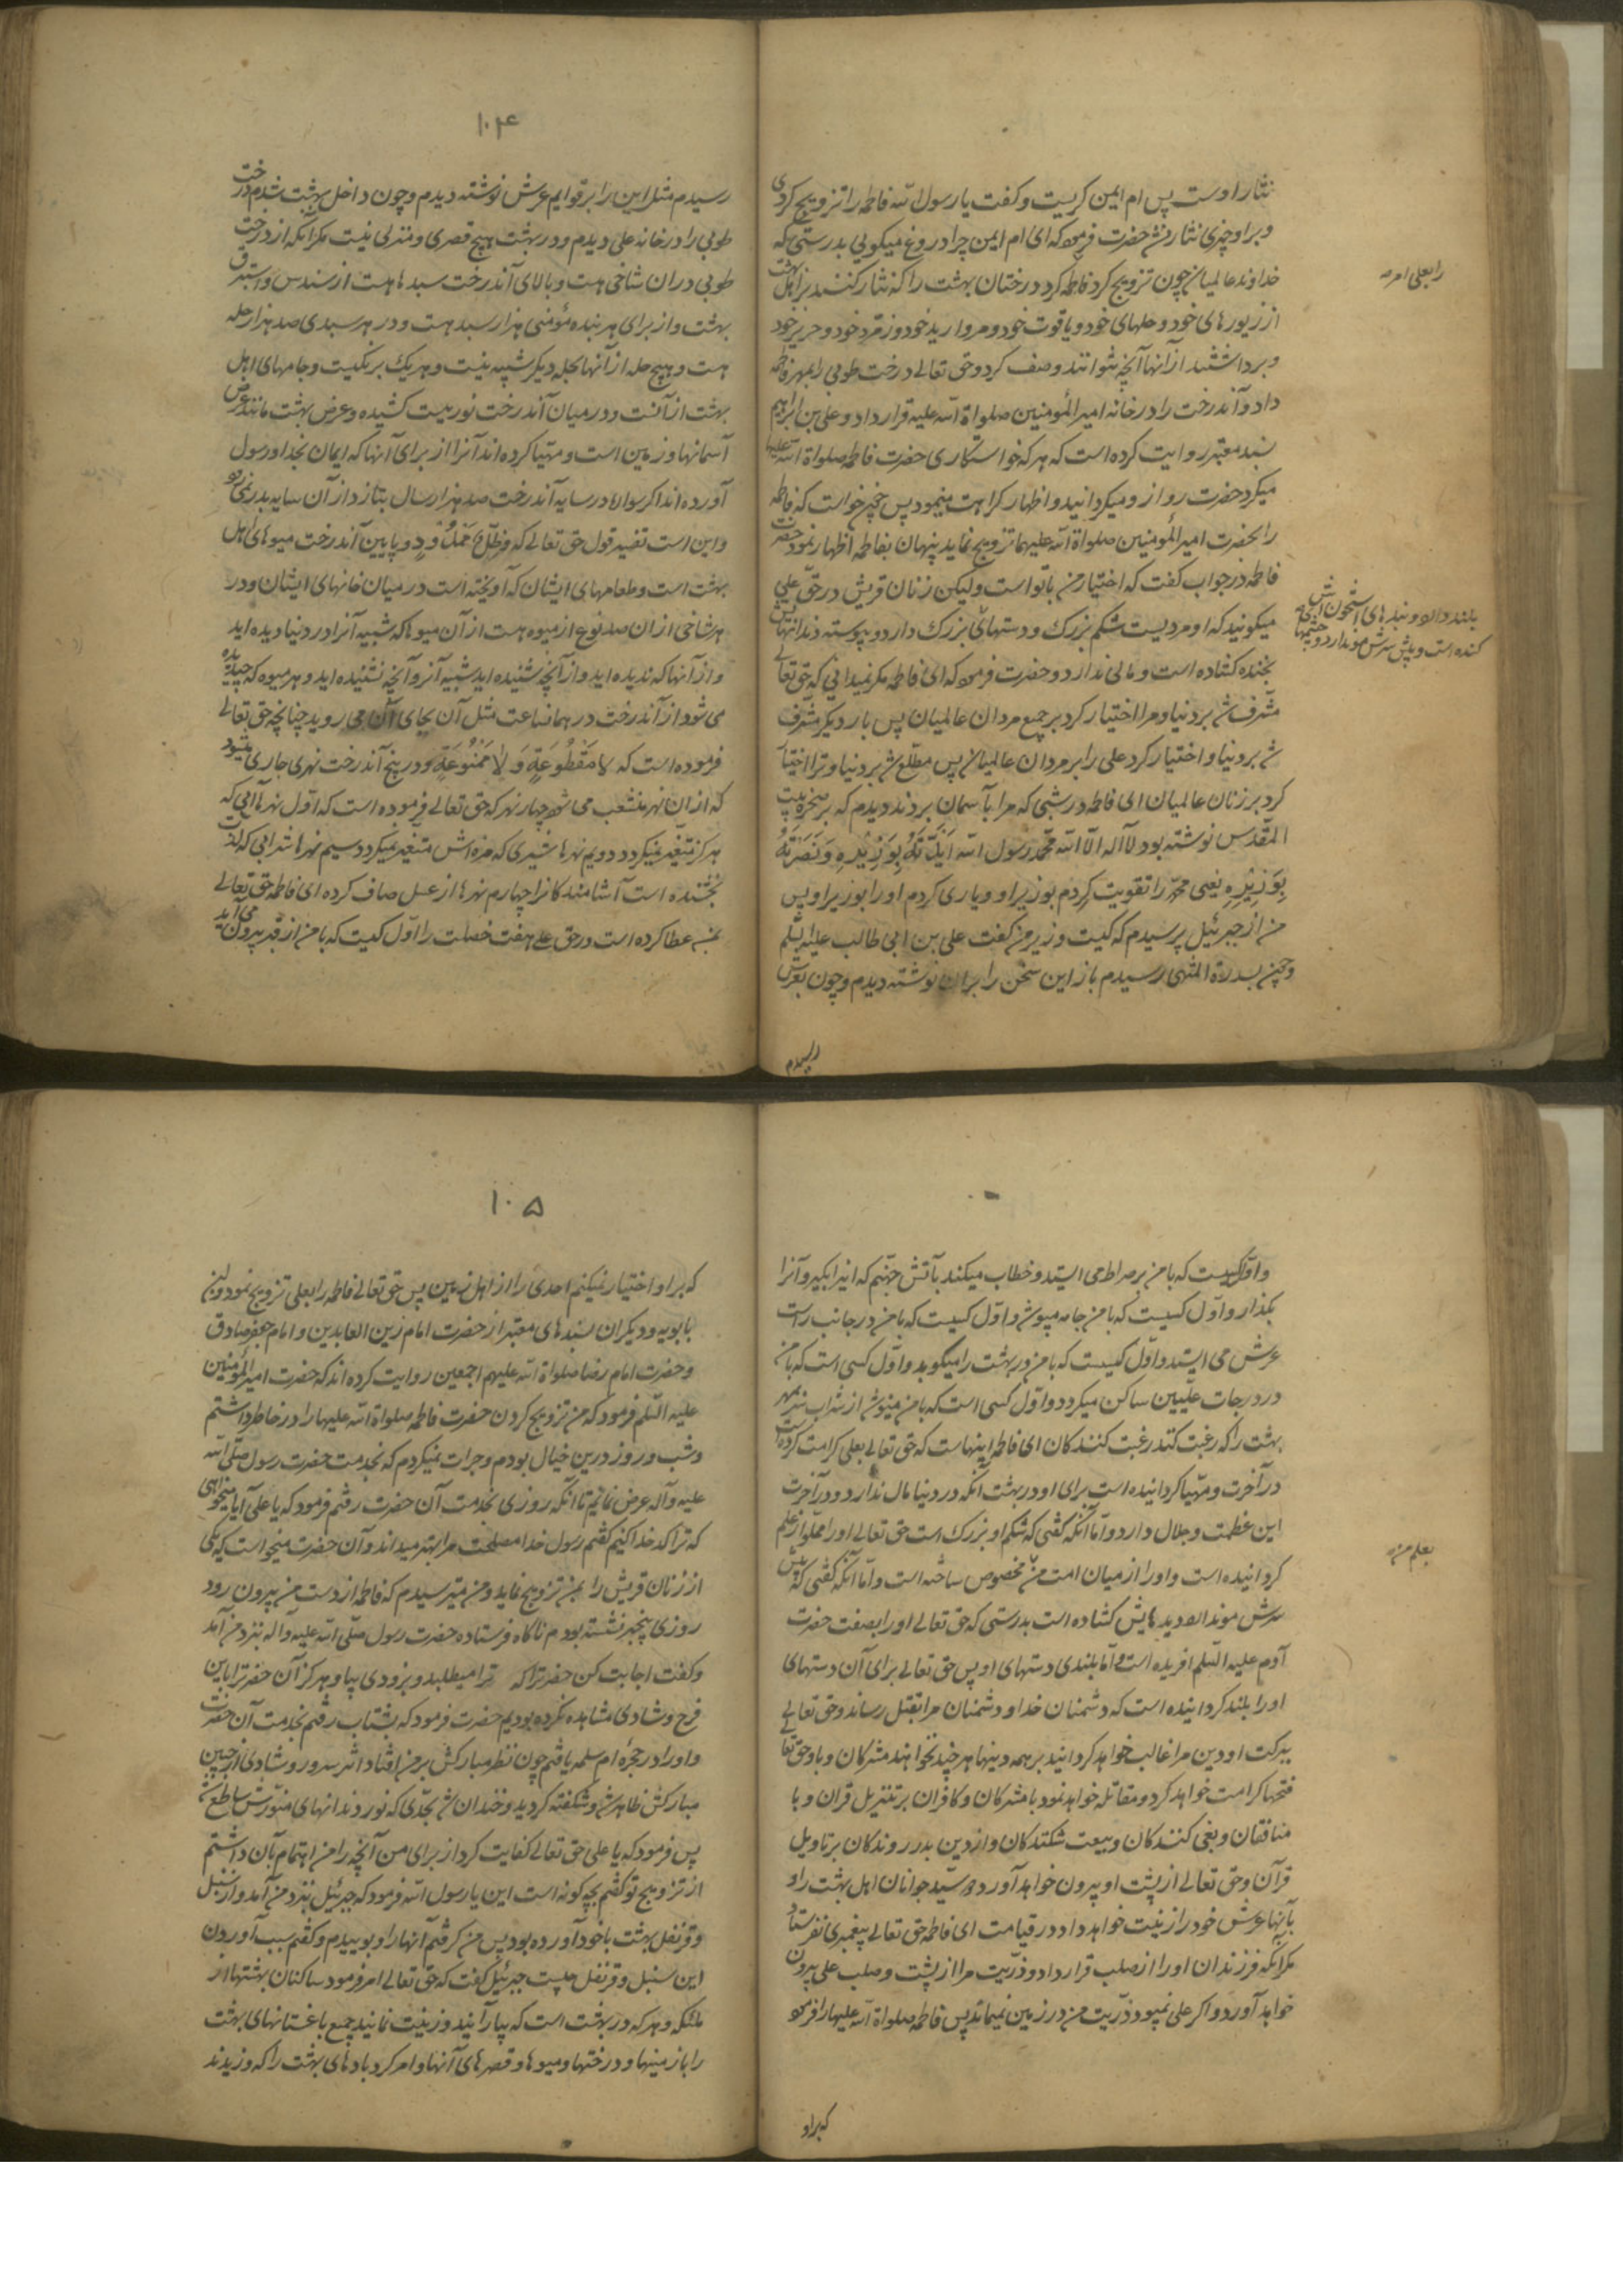 نثار اوست پس ام ایمن کریست و کفت یا رسول الله فاطمه را تزویج کردی
و براو چیزی نثار نشد حضرت فرمود که ای ام ایمن چرا دروغ میکویی بدرستی که
خداوند عالمیان چون تزویج کرد فاطمه کرد درختان بهشت را که نثار کنند بر اهل بهشت
رابعلی امر
از زیورهای خود و حلهای خود و یاقوت خود و مروارید خود و زمرد خود و حریر خود
و برداشتند از انها آنچه نتوانند وصف کرد و حق تعالی درخت طوبی را بمهر فاطمه
داد و آندرخت را در خانه امیر المؤمنین صلواة الله علیه قرار داد و علی بن ابراهیم
بسند معتبر روایت کرده است که هر که خواستکاری حضرت فاطمه صلواة الله علیها
میکرد حضرت رو از و میکردانید و اظهار کراهت مینمود پس چون خواست که فاطمه
را بحضرت امیر المؤمنین صلواة الله علیهما تزویج نماید پنهان بفاطمه اظهار نمود حضرت
فاطمه در جواب کفت که اختیار من با تواست ولیکن زنان قریش در حق علی
میکویند که او مردیست شکم بزرک و دستهای بزرک دارد و پیوسته دندانهایش
بلند دارد و بندهای استخوانش
کنده است و پیش سرش مو ندارد و چشمها
بخنده کشاده است و مالی ندارد و حضرت فرمود که ای فاطمه مکر نمیدانی که حق تعالی
مشرف شد بر دنیا و مرا اختیار کرد بر جمیع مردان عالمیان پس بار دیکر مشرف
شد بر دنیا و اختیار کرد علی را بر مردان عالمیان پس مطلع شد بر دنیا و ترا اختیار
کرد بر زنان عالمیان ای فاطمه در شبی که مرا بآسمان بردند دیدم که بر صخره بیت
المقدس نوشته بود لا اله الا الله محمد رسول الله ایدته بوزیره و نصرته
بوزیره یعنی محمد را تقویت کردم بوزیر او و یاری کردم او را بوزیر او پس
من از جبرئیل پرسیدم که کیست وزیر من کفت علی بن ابی طالب علیه السلم
و چون بسدرة المنتهی رسیدم باز این سخن را بران نوشته دیدم و چون بعرش
رسیدم
۱۰۴
رسیدم مثل این را بر قوایم عرش نوشته دیدم و چون داخل بهشت شدم درخت
طوبی را در خانه علی دیدم و در بهشت هیچ قصری و منزلی نیست مکر آنکه از درخت
طوبی دران شاخی هست و بالای آندرخت سبدها هست از سندس و استبرق
بهشت و از برای هر بنده مؤمنی هزار سبد هست و در هر سبدی صد هزار حله
هست و هیچ حله از آنها بحله دیکر شبیه نیست و هر یک برنکیست و جامهای اهل
بهشت از آنست و در میان آندرخت نوریست کشیده و عرض بهشت مانند عرض
آسمانها و زمین است و مهیّا کرده اند آنرا از برای آنها که ایمان بخدا و رسول
آورده اند اکر سوار در سایه آندرخت صد هزار سال بتازد از آن سایه بدر نمی رود
و این است تفسیر قول حق تعالی که وَظِلٍّ مَمْدُودٍ و پایین آندرخت میوهای اهل
بهشت است و طعامهای ایشان که آویخته است در میان خانهای ایشان و در
هر شاخی از ان صد نوع از میوه هست از آن میوها که شبیه آنرا در دنیا دیده اید
و از آنها که ندیده اید و از آنچه شنیده اید شبیه آنرو آنچه نشنیده اید و هر میوه که چیده
می شود از آندرخت در همانساعت مثل آن بجای آن می روید چنانچه حق تعالی
فرموده است که لا مَقْطُوعَةٍ وَلا مَمْنُوعَةٍ و در بیخ آندرخت نهری جاری میشود
که از ان نهر منشعب می شود چهار نهر که حق تعالی فرموده است که اول نهرهاابی که
هرکز متغیر نمیکردد دویم نهرها شیری که مزه اش متغیر نمیکردد سیم نهرها شرابی که لذت
بخشنده است آشامندکانرا چهارم نهرها از عسل صاف کرده ای فاطمه حق تعالی
بمن عطا کرده است در حق علی هفت خصلت را اول کسیت که با من از قبر بیرون می آید
و اول کسیست که با من بر صراط می ایستد و خطاب میکند بآتش جهنم که اینرا بکیر و آنرا
بکذار و اول کسیست که با من جامه میپوشد و اول کسیست که با من در جانب راست
عرش می ایستد و اول کسیست که با من در بهشت را میکوبد و اول کسی است که با من
در درجات علیین ساکن میکردد و اول کسی است که با من مینوشد از شراب سر بمهر
بهشت را که رغبت کنند رغبت کنندکان ای فاطمه اینهاست که حق تعالی بعلی کرامت کرده است
در آخرت و مهیا کردانیده است برای او در بهشت آنکه در دنیا مال ندارد و در آخرت
این عظمت و جلال دارد و اما آنکه کفتی که شکم او بزرک است حق تعالی او را مملو از علم
کردانیده است و او را از میان امت من مخصوص ساخته است و اما آنکه کفتی که پیش
بعلم من
سرش مو ندارد و دیدهایش کشاده است بدرستی که حق تعالی او را بصفت حضرت
آدم علیه السلم افریده است و اما بلندی دستهای او پس حق تعالی برای آن دستهای
او را بلند کردانیده است که دشمنان خدا و دشمنان مرا بقتل رساند و حق تعالی
ببرکت او دین مرا غالب خواهد کردانید بر همه دینها هر چند نخواهند مشرکان و باو حق تعالی
فتحها کرامت خواهد کرد و مقاتله خواهد نمود با مشرکان و کافران بر تنزیل قران و با
منافقان و بغی کنندکان و بیعت شکنندکان و از دین بدر روندکان بر تاویل
قرآن و حق تعالی از پشت او بیرون خواهد آورد دو سیّد جوانان اهل بهشت را و
بآنها عرش خود را زینت خواهد داد در قیامت ای فاطمه حق تعالی پیغمبری نفرستاد
مکر آنکه فرزندان او را از صلب قرار داد و ذریت مرا از پشت و صلب علی بیرون
خواهد آورد و اکر علی نمیبود ذریت من در زمین نمیماند پس فاطمه صلواة الله علیها را فرمود
که براو
۱۰۵
که براو اختیار نمیکنم احدی را از اهل زمین پس حق تعالی فاطمه را بعلی تزویج نمود و ابن
بابویه و دیکران بسندهای معتبر از حضرت امام زین العابدین و امام جعفر صادق
و حضرت امام رضا صلواة الله علیهم اجمعین روایت کرده اند که حضرت امیر المؤمنین
علیه السلم فرمود که من تزویج کردن حضرت فاطمه صلواة الله علیها را در خاطر داشتم
و شب و روز درین خیال بودم و جرات نمیکردم که بخدمت حضرت رسول صلی الله
علیه و آله عرض نمایم تا آنکه روزی بخدمت آن حضرت رفتم فرمود که یا علی آیا میخواهی
که ترا کدخدا کنیم کفتم رسول خدا مصلحت مرا بهتر میداند و آن حضرت میخواست که یکی
از زنان قریش را بمن تزویج نماید و من میترسیدم که فاطمه از دست من بیرون رود
روزی بیخبر نشسته بودم ناکاه فرستاده حضرت رسول صلی الله علیه و آله نزد من آمد
و کفت اجابت کن حضرترا که ترا میطلبد و بزودی بیا و هرکز آن حضرترا باین
فرح و شادی مشاهده نکرده بودیم حضرت فرمود که بشتاب رفتم بخدمت آن حضرت
و او را در حجرهٔ ام سلمه یافتم چون نظر مبارکش بر من افتاد اثر سرور و شادی از جبین
مبارکش ظاهر شد و شکفته کردید و خندان شد بحدی که نور دندانهای منورش ساطع شد
پس فرمود که یا علی حق تعالی کفایت کرد از برای من آنچه را من اهتمام بآن داشتم
از تزویج تو کفتم بچه کونه است این یا رسول الله فرمود که جبرئیل نزد من آمد و از سنبل
و قرنفل بهشت با خود آورده بود پس من کرفتم آنها را و بوییدم و کفتم سبب آوردن
این سنبل و قرنفل چیست جبرئیل کفت که حق تعالی امر فرمود ساکنان بهشتها از
ملئکه و هر که در بهشت است که بیارآیند و زینت نمایند جمیع باغستانهای بهشت
را با زمینها و درختها و میوها و قصرهای آنها و امر کرد بادهای بهشت را که وزیدند